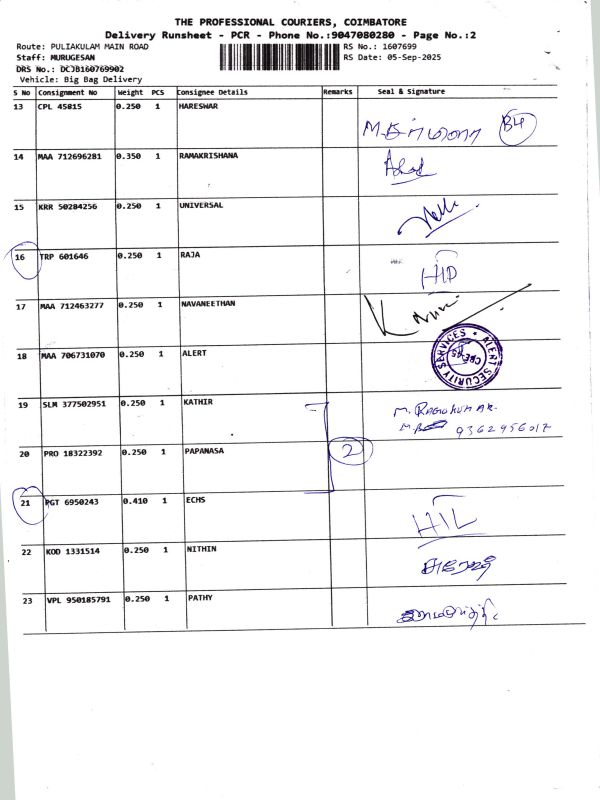 THE PROFESSIONAL COURIERS, COIMBATORE
Delivery Runsheet - PCR - Phone No.:9047080280 - Page No.:2
Route: PULIAKULAM MAIN ROAD RS No.: 1607699
Staff: MURUGESAN RS Date: 05-Sep-2025
DRS No.: DCJB160769902
Vehicle: Big Bag Delivery
S No Consignment No Weight PCS Consignee Details Remarks Seal & Signature
13 CPL 45815 0.250 1 HARESWAR
B4
14 MAA 712696281 0.350 1 RAMAKRISHANA
15 KRR 50284256 0.250 1 UNIVERSAL
16 TRP 601646 0.250 1 RAJA
17 MAA 712463277 0.250 1 NAVANEETHAN
18 MAA 706731070 0.250 1 ALERT
ALERT SECURITY SERVICES
19 SLM 377502951 0.250 1 KATHIR M. RAGUKUMAR.
9362956017
20 PRO 18322392 0.250 1 PAPANASA 2
21 PGT 6950243 0.410 1 ECHS
22 KOD 1331514 0.250 1 NITHIN
23 VPL 950185791 0.250 1 PATHY